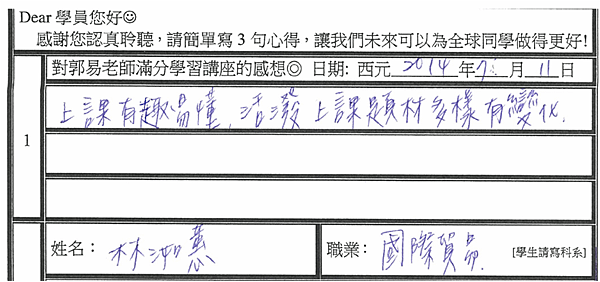 Dear 學員您好☺
感謝您認真聆聽，請簡單寫 3 句心得，讓我們未來可以為全球同學做得更好!
對郭易老師滿分學習講座的感想◎ 日期: 西元 2014 年 7 月 11 日
1
上課有趣易懂，活潑上課題材多樣有變化.
姓名： 林淑蕙 職業： 國際貿易. [學生請寫科系]